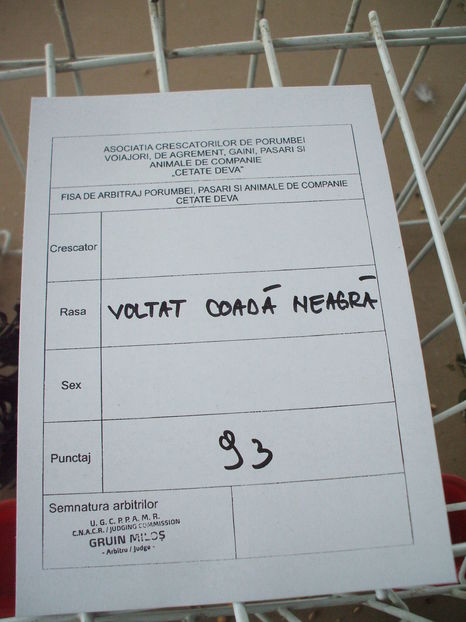 ASOCIATIA CRESCATORILOR DE PORUMBEI
VOIAJORI, DE AGREMENT, GAINI, PASARI SI
ANIMALE DE COMPANIE
„CETATE DEVA”
FISA DE ARBITRAJ PORUMBEI, PASARI SI ANIMALE DE COMPANIE
CETATE DEVA
Crescator
Rasa VOLTAT COADĂ NEAGRĂ
Sex
Punctaj 93
Semnatura arbitrilor
U. G. C. P. P. A. M. R.
C.N.A.C.R. / JUDGING COMMISSION
GRUIN MILOȘ
- Arbitru / Judge -